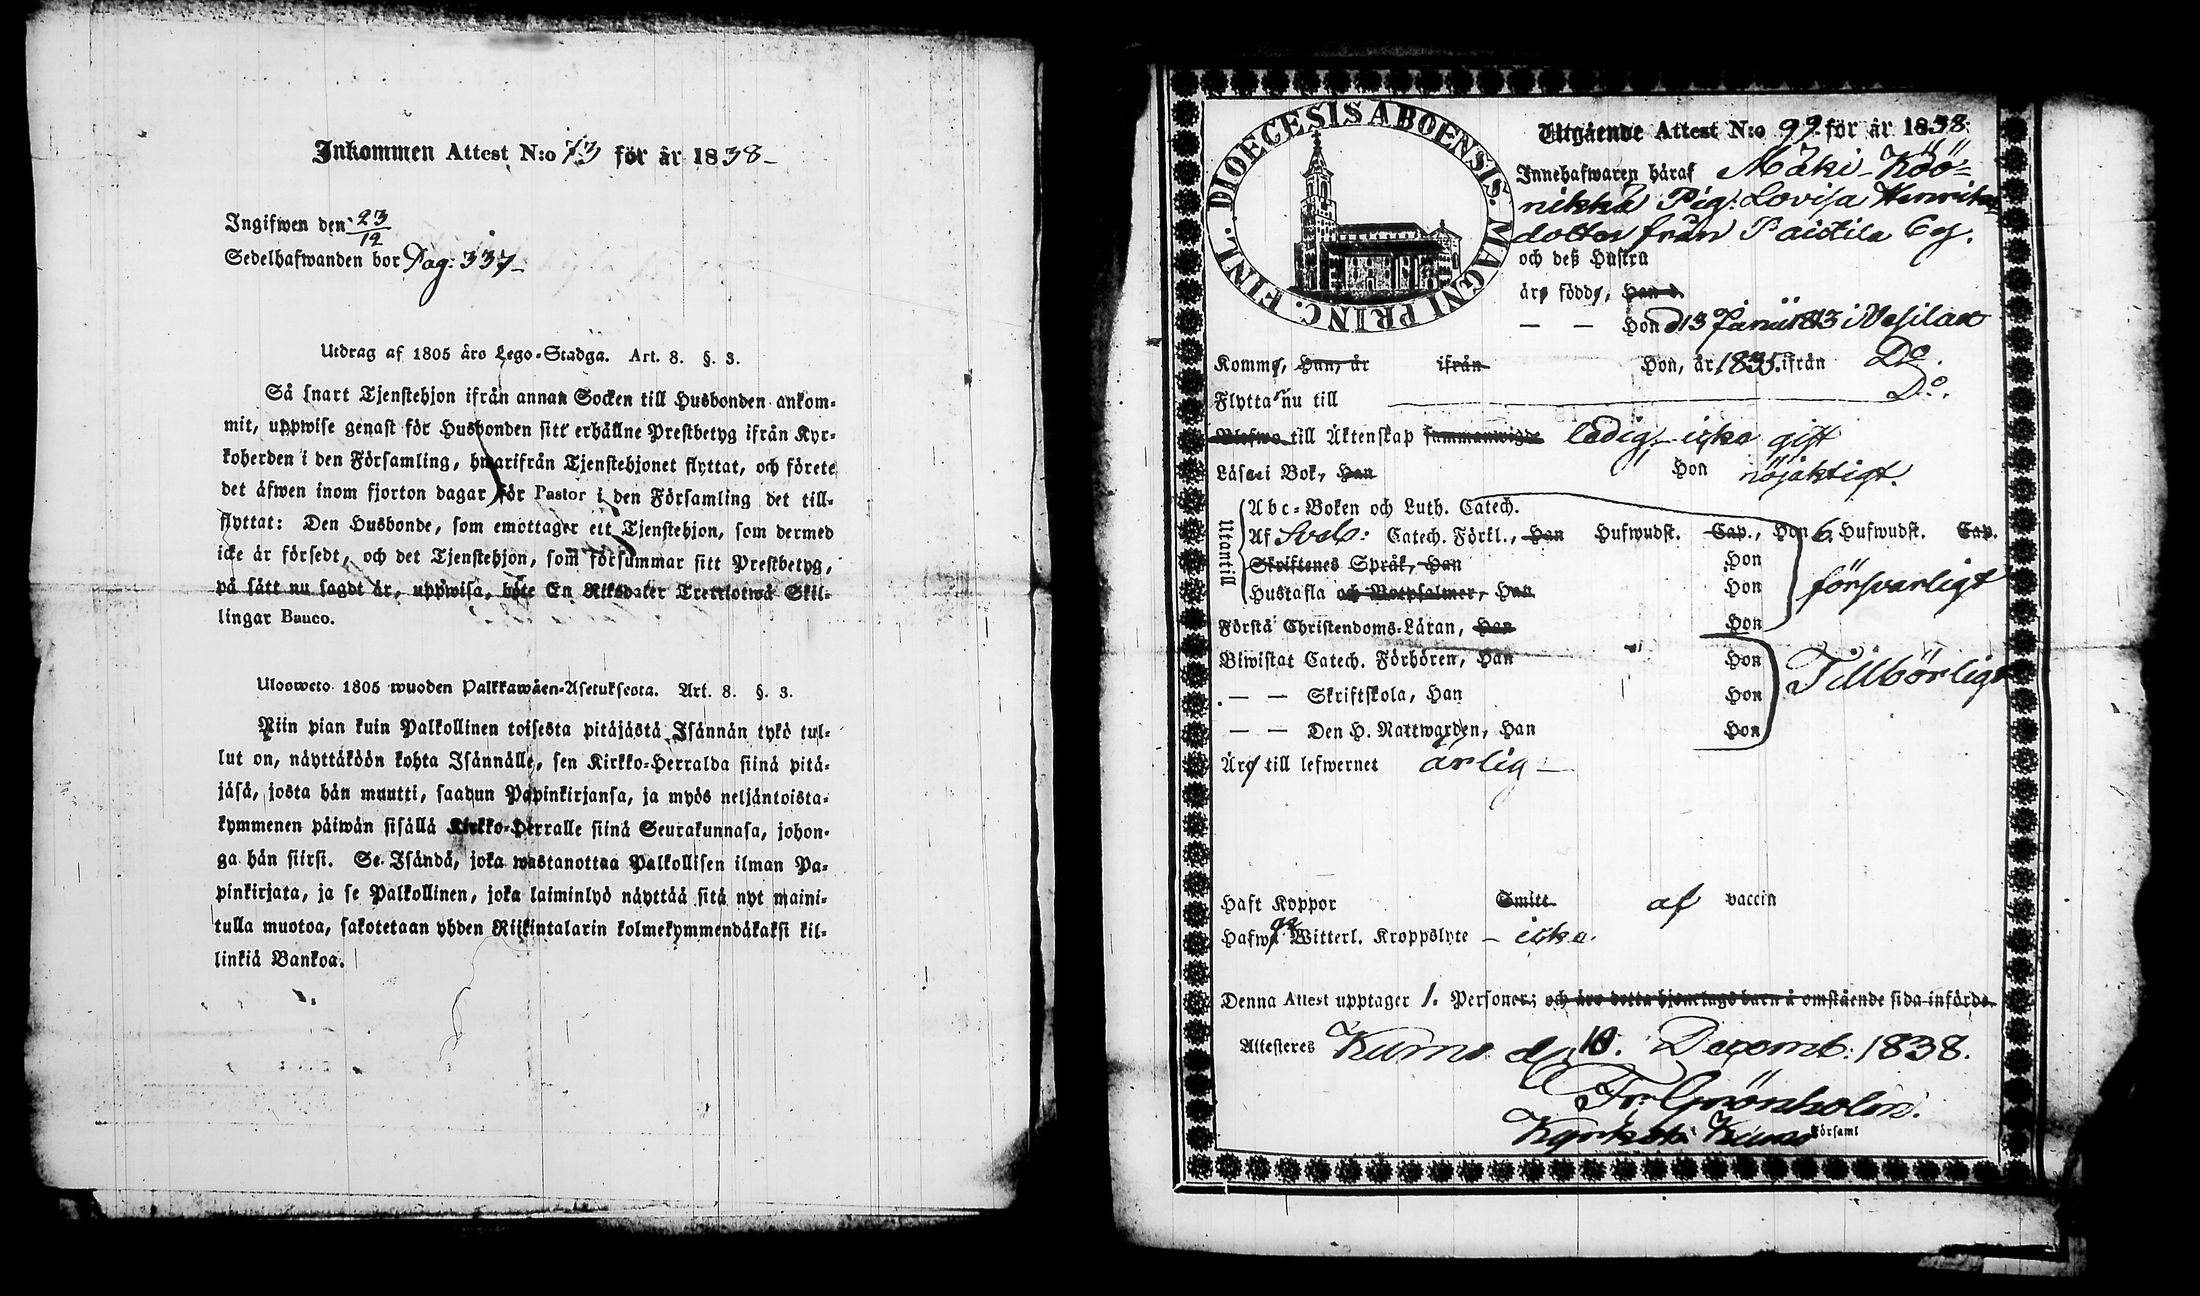 Inkommen Attest N:o 73 för år 1838-
Ingifwen den 23/12
Sedelhafwanden bor Pag: 337-
Utdrag af 1805 års Lego-Stadga. Art. 8. §. 3.
Så snart Tjenstehjon ifrån annan Socken till Husbonden ankom-
mit, uppwise genast för Husbonden sitt erhållne Prestbetyg ifrån Kyr-
koherden i den Församling, hwarifrån Tjenstehjonet flyttat, och förete
det äfwen inom fjorton dagar för Pastor i den Församling det till-
flyttat: Den Husbonde, som emottager ett Tjenstehjon, som dermed
icke är försedt, och det Tjenstehjon, som försummar sitt Prestbetyg,
på sätt nu sagdt är, uppwisa, böte En Riksdaler Trettiotwå Skil-
lingar Banco.
Ulosweto 1805 wuoden Palkkawäen-Asetuksesta. Art. 8. §. 3.
Niin pian kuin Palkollinen toisesta pitäjästä Isännän tykö tul-
lut on, näyttäköön kohta Isännälle, sen Kirkko-Herralda siinä pitä-
jäsä, josta hän muutti, saadun Papinkirjansa, ja myös neljäntoista-
kymmenen päiwän sisällä Kirkko-Herralle siinä Seurakunnasa, johon-
ga hän siirsi. Se Isändä, joka wastanottaa Palkollisen ilman Pa-
pinkirjata, ja se Palkollinen, joka laiminlyö näyttää sitä nyt maini-
tulla muotoa, sakotetaan yhden Riikintalarin kolmekymmendäkaksi kil-
linkiä Bankoa.
DIOECESIS ABOENSIS. MAGNI PRINC. FINL.
Utgående Attest N:o 99 för år 1838.
Innehafwaren häraf Mäki-Köö-
nikkä Pig: Lovisa Henriks
dotter från Paistila By.
och deß Hustru
äro födde, Han d.
— — Hon d 13 Janu 1813 i Vesilax
Komme, Han, år ifrån Hon, år 1835. ifrån Do.
Flytta nu till Do.
Blefwo till Äktenskap sammanwigde ledig, icke gift
Läsa i Bok, Han Hon nöjaktigt.
Utantill
Abc-Boken och Luth. Catech.
Af Sveb: Catech. Förkl., Han Hufwudst. Cap., Hon 6. Hufwudst. Cap.
Skriftenes Språk, Han Hon
Hustafla och Botpsalmer, Han Hon försvarligt
Förstå Christendoms-Läran, Han Hon
Biwistat Catech. Förhören, Han Hon
— — Skriftskola, Han Hon Tillbörligt
— — Den H. Nattwarden, Han Hon
Äro till lefwernet ärlig —
Haft Koppor Smitt af vaccin
Hafwa Witterl. Kroppslyte — icke.
Denna Attest upptager 1. Personer; och äro detta hjonelags barn å omstående sida införde.
Attesteres Kumo d. 10. Decemb: 1838.
Fr: Grönholm.
Kyrkoh: i Kumo Församl